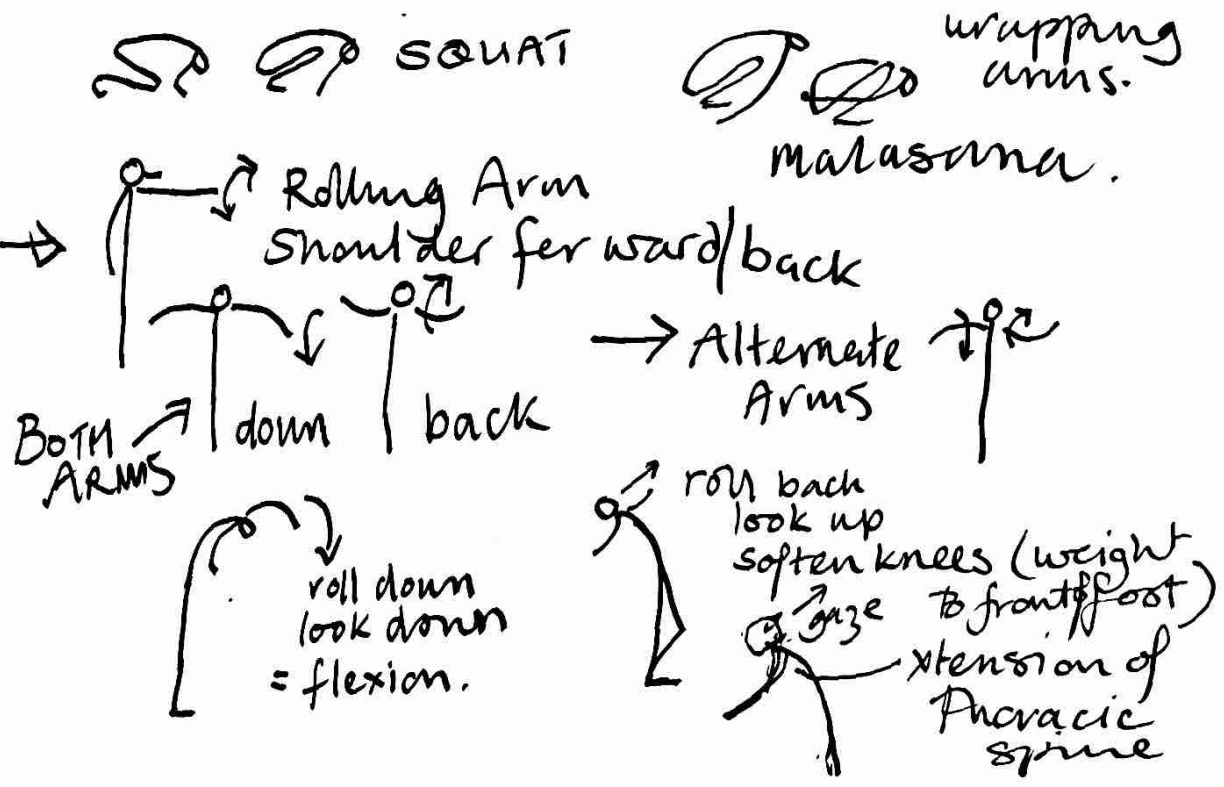 SQUAT
wrapping
arms.
malasana.
Rolling Arm
Shoulder forward/back
BOTH
ARMS
down
back
Alternate
Arms
roll down
look down
= flexion.
roll back
look up
soften knees (weight
to front of foot)
gaze
xtension of
Thoracic
spine